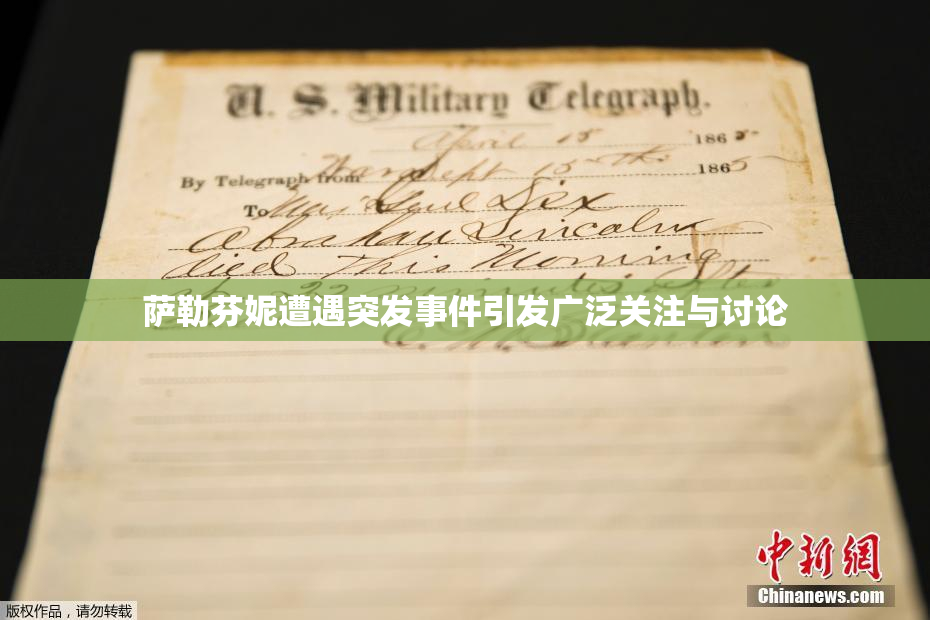 U. S. Military Telegraph.
April 15 1865
By Telegraph from War Dept 15th 1865
To Maj Genl Dix
Abraham Lincoln
died This Morning
22 minutes after
萨勒芬妮遭遇突发事件引发广泛关注与讨论
E. M. Stanton
中新網
Chinanews.com
版权作品，请勿转载